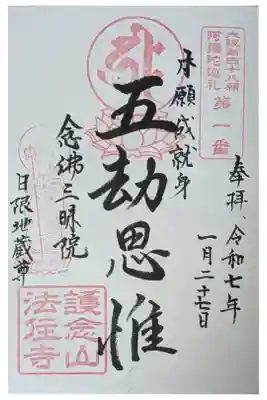 大阪新四十八願
阿彌陀巡礼
第一番
奉拝、令和七年
一月二十七日
本願成就身
五劫思惟
念佛三昧院
日限地蔵尊
護念山
法住寺